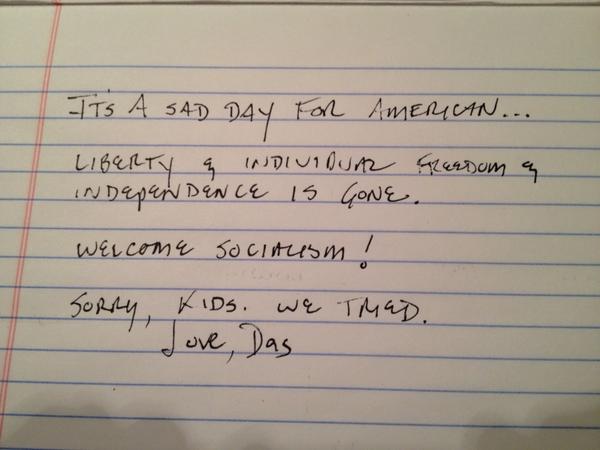 IT'S A SAD DAY FOR AMERICAN...
LIBERTY & INDIVIDUAL FREEDOM &
INDEPENDENCE IS GONE.
WELCOME SOCIALISM!
SORRY, KIDS. WE TRIED.
Love, Das